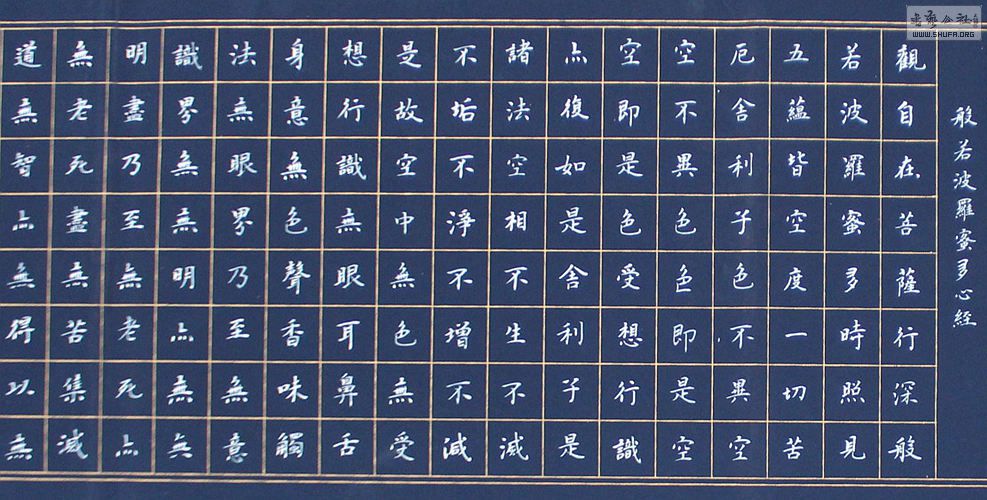 般若波羅蜜多心經
觀自在菩薩行深般
若波羅蜜多時照見
五蘊皆空度一切苦
厄舍利子色不異空
空不異色色即是空
空即是色受想行識
亦復如是舍利子是
諸法空相不生不滅
不垢不淨不增不減
是故空中無色無受
想行識無眼耳鼻舌
身意無色聲香味觸
法無眼界乃至無意
識界無無明亦無無
明盡乃至無老死亦
無老死盡無苦集滅
道無智亦無得以無
書藝公社
WWW.SHUFA.ORG